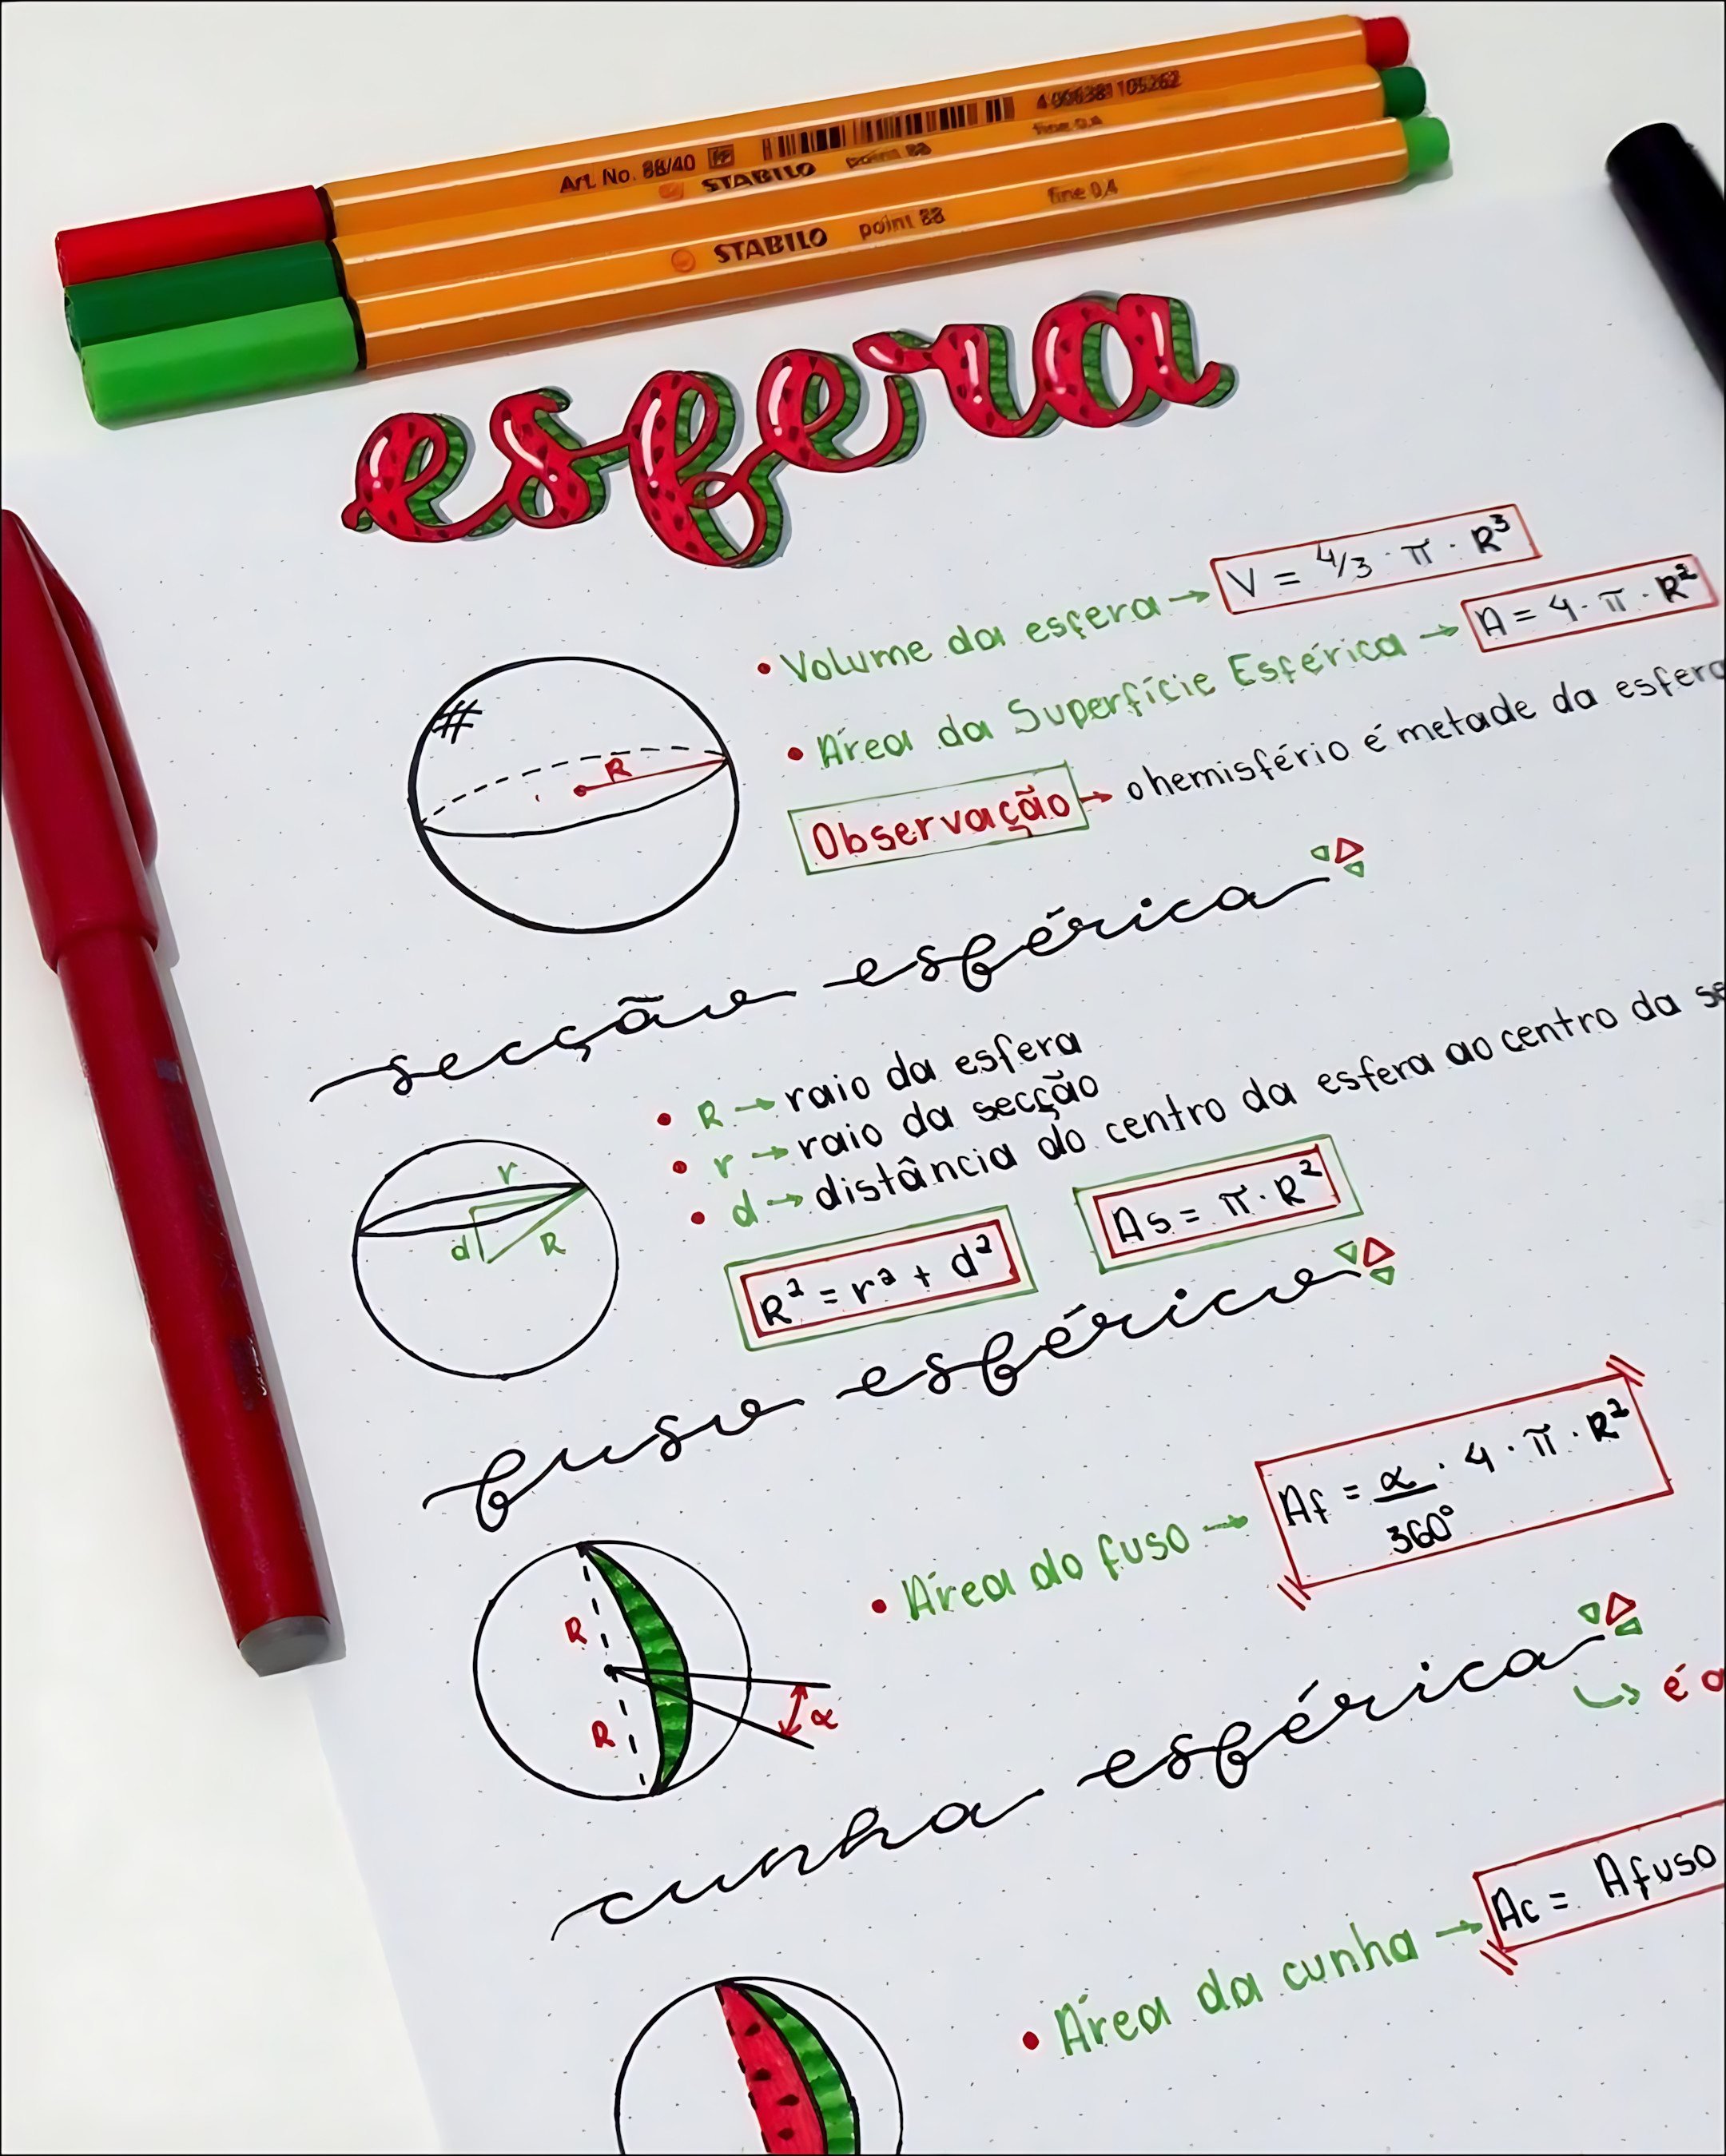 Art. No. 88/40
4 006381 105262
STABILO point 88 fine 0,4
STABILO point 88 fine 0,4
esfera
• Volume da esfera → V = 4/3 · π · R³
• Área da Superfície Esférica → A = 4 · π · R²
Observação → o hemisfério é metade da esfera
#
R
secção esférica
• R → raio da esfera
• r → raio da secção
• d → distância do centro da esfera ao centro da se
r
d
R
R² = r² + d²
As = π · R²
fuso esférico
• Área do fuso → Af = α/360° · 4 · π · R²
R
R
α
cunha esférica
é a
• Área da cunha → Ac = Afuso